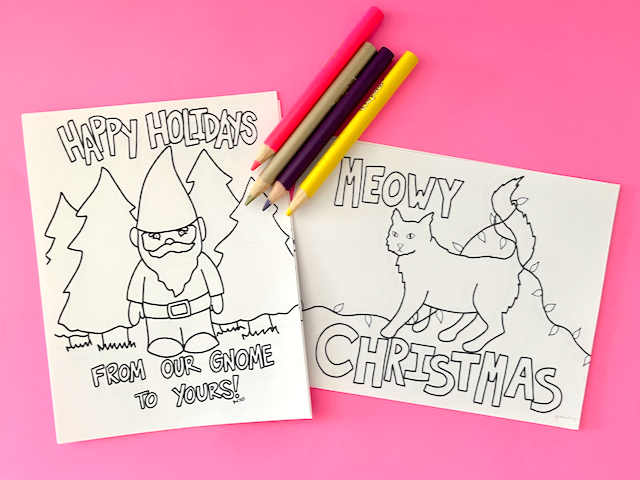 HAPPY HOLIDAYS
FROM OUR GNOME
TO YOURS!
MEOWY
CHRISTMAS